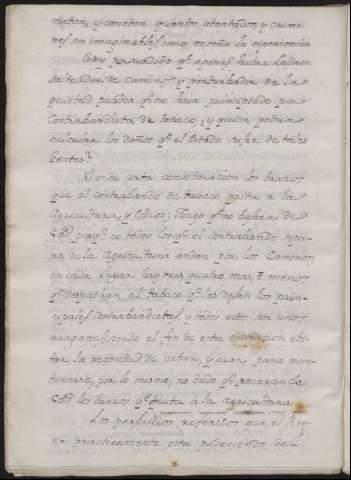 nisten, y cometen quantos atentados, y crimi-
nes son imaginables, como enseña la experiencia
Estoy persuadido qº apenas habra Ladron
salteador de caminos, y perturbador de la
quietud publica, qº no haia principiado por
Contrabandista de tabaco, ¿y quien podra
calcular los daños qº el Estado sufre de tales
Gentes?
No es de corta consideracion los brazos
que el contrabando de tabaco quita a la
Agricultura, y Oficios: Tengo qº no bajara de
porqº no todos los qº el Contrabando
ra de la Agricultura andan por los Caminos;
en cada lugar hay tres, quatro, mas, ó menos
qº despachan el tabaco qº les dejan los prin-
cipales Contrabandistas, y todos estos son unos
araganes, siendo el fin de esta evi-
tar la necesidad de cabar, y arar para man-
tenerse, por lo mismo, no dudo qº pasaran de
los brazos qº quita a la agricultura
Los perjuicios referidos que el
ne practicamente esta del